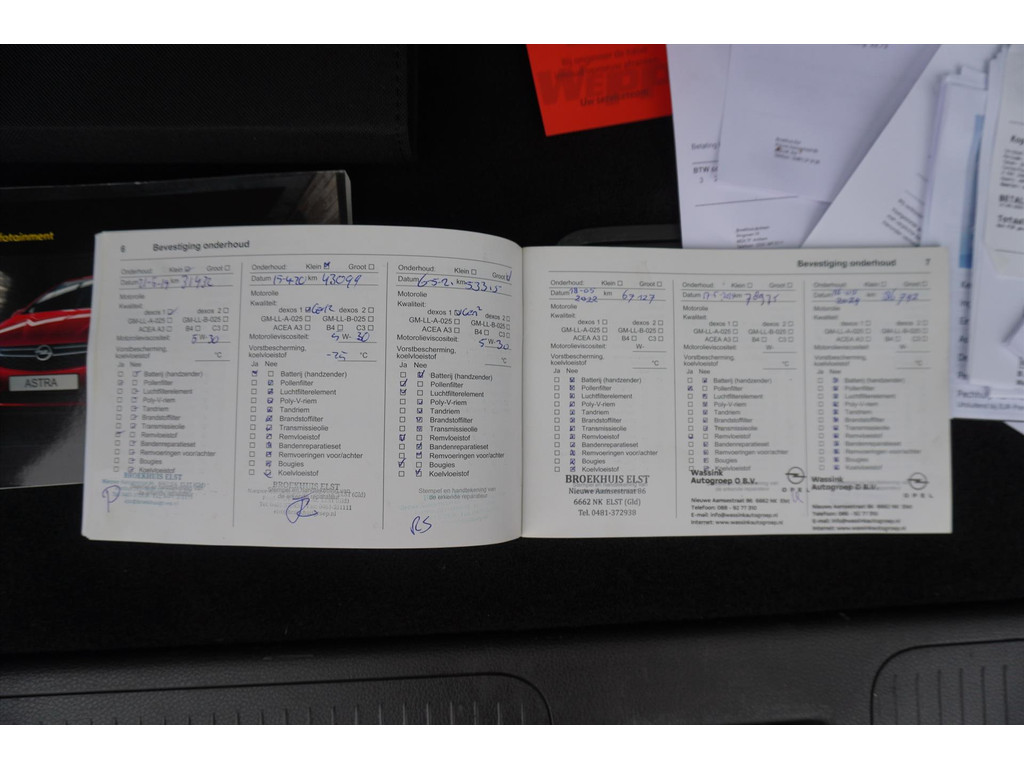 WEIST
BTW
fotainment
ASTRA
6 Bevestiging onderhoud
Onderhoud: Klein ☑ Groot ☐
Datum km 31432
Motorolie
Kwaliteit:
dexos 1 ☑ dexos 2 ☐
GM-LL-A-025 ☐ GM-LL-B-025 ☐
ACEA A3 ☐ B4 ☐ C3 ☐
Motorolieviscositeit: 5 W- 30
Vorstbescherming,
koelvloeistof °C
Ja Nee
Batterij (handzender)
Pollenfilter
Luchtfilterelement
Poly-V-riem
Tandriem
Brandstoffilter
Transmissieolie
Remvloeistof
Bandenreparatieset
Remvoeringen voor/achter
Bougies
Koelvloeistof
BROEKHUIS ELST
Onderhoud: Klein ☑ Groot ☐
Datum 15-4-20 km 43099
Motorolie
Kwaliteit:
dexos 1 Gen 2 dexos 2 ☐
GM-LL-A-025 ☐ GM-LL-B-025 ☐
ACEA A3 ☐ B4 ☐ C3 ☐
Motorolieviscositeit: 5 W- 30
Vorstbescherming,
koelvloeistof -25 °C
Ja Nee
Batterij (handzender)
Pollenfilter
Luchtfilterelement
Poly-V-riem
Tandriem
Brandstoffilter
Transmissieolie
Remvloeistof
Bandenreparatieset
Remvoeringen voor/achter
Bougies
Koelvloeistof
BROEKHUIS ELST
Onderhoud: Klein ☐ Groot ☑
Datum 6-5-21 km 53315
Motorolie
Kwaliteit:
dexos 1 Gen 2 dexos 2 ☐
GM-LL-A-025 ☐ GM-LL-B-025 ☐
ACEA A3 ☐ B4 ☐ C3 ☐
Motorolieviscositeit: 5 W- 30
Vorstbescherming,
koelvloeistof °C
Ja Nee
Batterij (handzender)
Pollenfilter
Luchtfilterelement
Poly-V-riem
Tandriem
Brandstoffilter
Transmissieolie
Remvloeistof
Bandenreparatieset
Remvoeringen voor/achter
Bougies
Koelvloeistof
Stempel en handtekening van
de erkende reparateur
RS
Bevestiging onderhoud 7
Onderhoud: Klein ☐ Groot ☐
Datum 18-05 2022 km 67127
Motorolie
Kwaliteit:
dexos 1 ☐ dexos 2 ☐
GM-LL-A-025 ☐ GM-LL-B-025 ☐
ACEA A3 ☐ B4 ☐ C3 ☐
Motorolieviscositeit: W-
Vorstbescherming,
koelvloeistof °C
Ja Nee
Batterij (handzender)
Pollenfilter
Luchtfilterelement
Poly-V-riem
Tandriem
Brandstoffilter
Transmissieolie
Remvloeistof
Bandenreparatieset
Remvoeringen voor/achter
Bougies
Koelvloeistof
BROEKHUIS ELST
Nieuwe Aamsestraat 86
6662 NK ELST (Gld)
Tel. 0481-372938
Onderhoud: Klein ☐ Groot ☐
Datum km 78975
dexos 1 ☐ dexos 2 ☐
GM-LL-A-025 ☐ GM-LL-B-025 ☐
ACEA A3 ☐ B4 ☐ C3 ☐
Motorolieviscositeit: W-
Vorstbescherming,
koelvloeistof °C
Ja Nee
Batterij (handzender)
Pollenfilter
Luchtfilterelement
Poly-V-riem
Tandriem
Brandstoffilter
Transmissieolie
Remvloeistof
Bandenreparatieset
Remvoeringen voor/achter
Bougies
Koelvloeistof
Wassink
Autogroep O B.V.
OPEL
Nieuwe Aamsestraat 86 6662 NK Elst
Telefoon: 088 - 62 77 310
E-mail: info@wassinkautogroep.nl
Internet: www.wassinkautogroep.nl
Onderhoud: Klein ☐ Groot ☐
Datum 2024 km
Motorolie
Kwaliteit:
dexos 1 ☐ dexos 2 ☐
GM-LL-A-025 ☐ GM-LL-B-025 ☐
ACEA A3 ☐ B4 ☐ C3 ☐
Motorolieviscositeit: W-
Vorstbescherming,
koelvloeistof °C
Ja Nee
Batterij (handzender)
Pollenfilter
Luchtfilterelement
Poly-V-riem
Tandriem
Brandstoffilter
Transmissieolie
Remvloeistof
Bandenreparatieset
Remvoeringen voor/achter
Bougies
Koelvloeistof
Wassink
Autogroep O B.V.
OPEL
Nieuwe Aamsestraat 86 6662 NK Elst
Telefoon: 088 - 62 77 310
E-mail: info@wassinkautogroep.nl
Internet: www.wassinkautogroep.nl